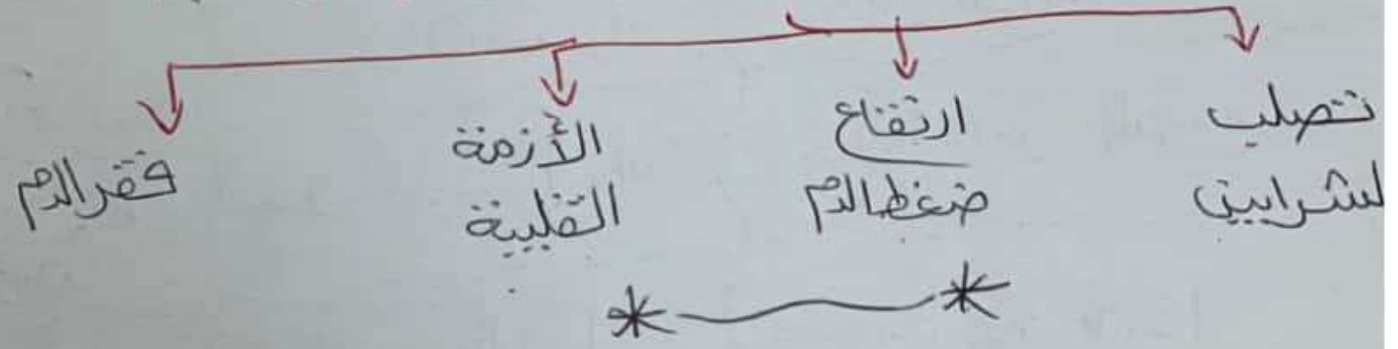 تصلب
لشرايين
ارتفاع
ضغط الدم
الأزمة
القلبية
فقر الدم